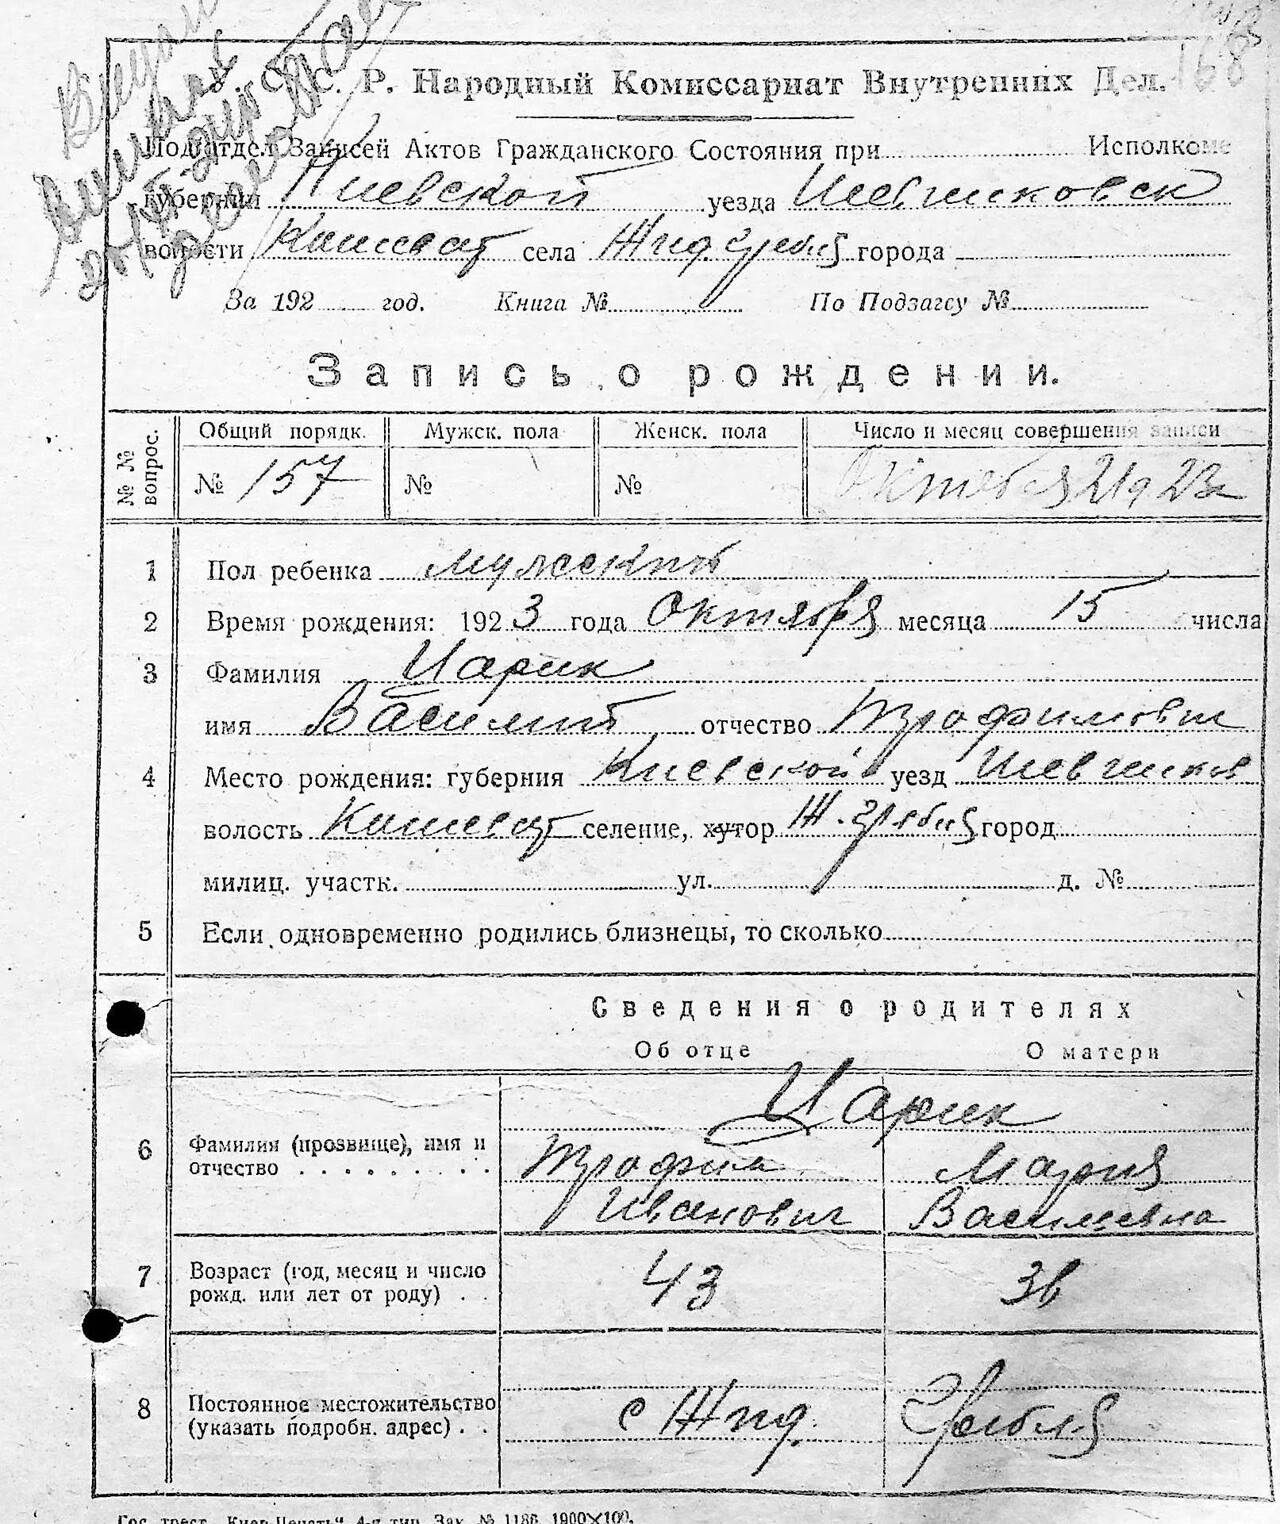 168
У. С. С. Р. Народный Комиссариат Внутренних Дел.
Подотдел Записей Актов Гражданского Состояния при Исполкоме
губернии Киевской уезда Шевченковск
волости Кошеват села Жид. Гребля города
За 192 год. Книга № По Подзагсу №
Запись о рождении.
№ № вопрос. Общий порядк. Мужск. пола Женск. пола Число и месяц совершения записи
№ 157 № № Октября 21 д 23 г
1 Пол ребенка мужеский
2 Время рождения: 1923 года Октября месяца 15 числа
3 Фамилия Царик
имя Василий отчество Трофимович
4 Место рождения: губерния Киевской уезд Шевченков
волость Кошеват селение, хутор Ж. Гребля город
милиц. участк. ул. д. №
5 Если одновременно родились близнецы, то сколько
Сведения о родителях
Об отце О матери
Царик
6 Фамилия (прозвище), имя и Трофим Мария
отчество Иванович Василиевна
7 Возраст (год, месяц и число 43 36
рожд. или лет от роду)
8 Постоянное местожительство с Жид. Гребля
(указать подробн. адрес)
Гос. трест „Киев-Печать“ 4-я тип. Зак. № 1186. 1900×100.